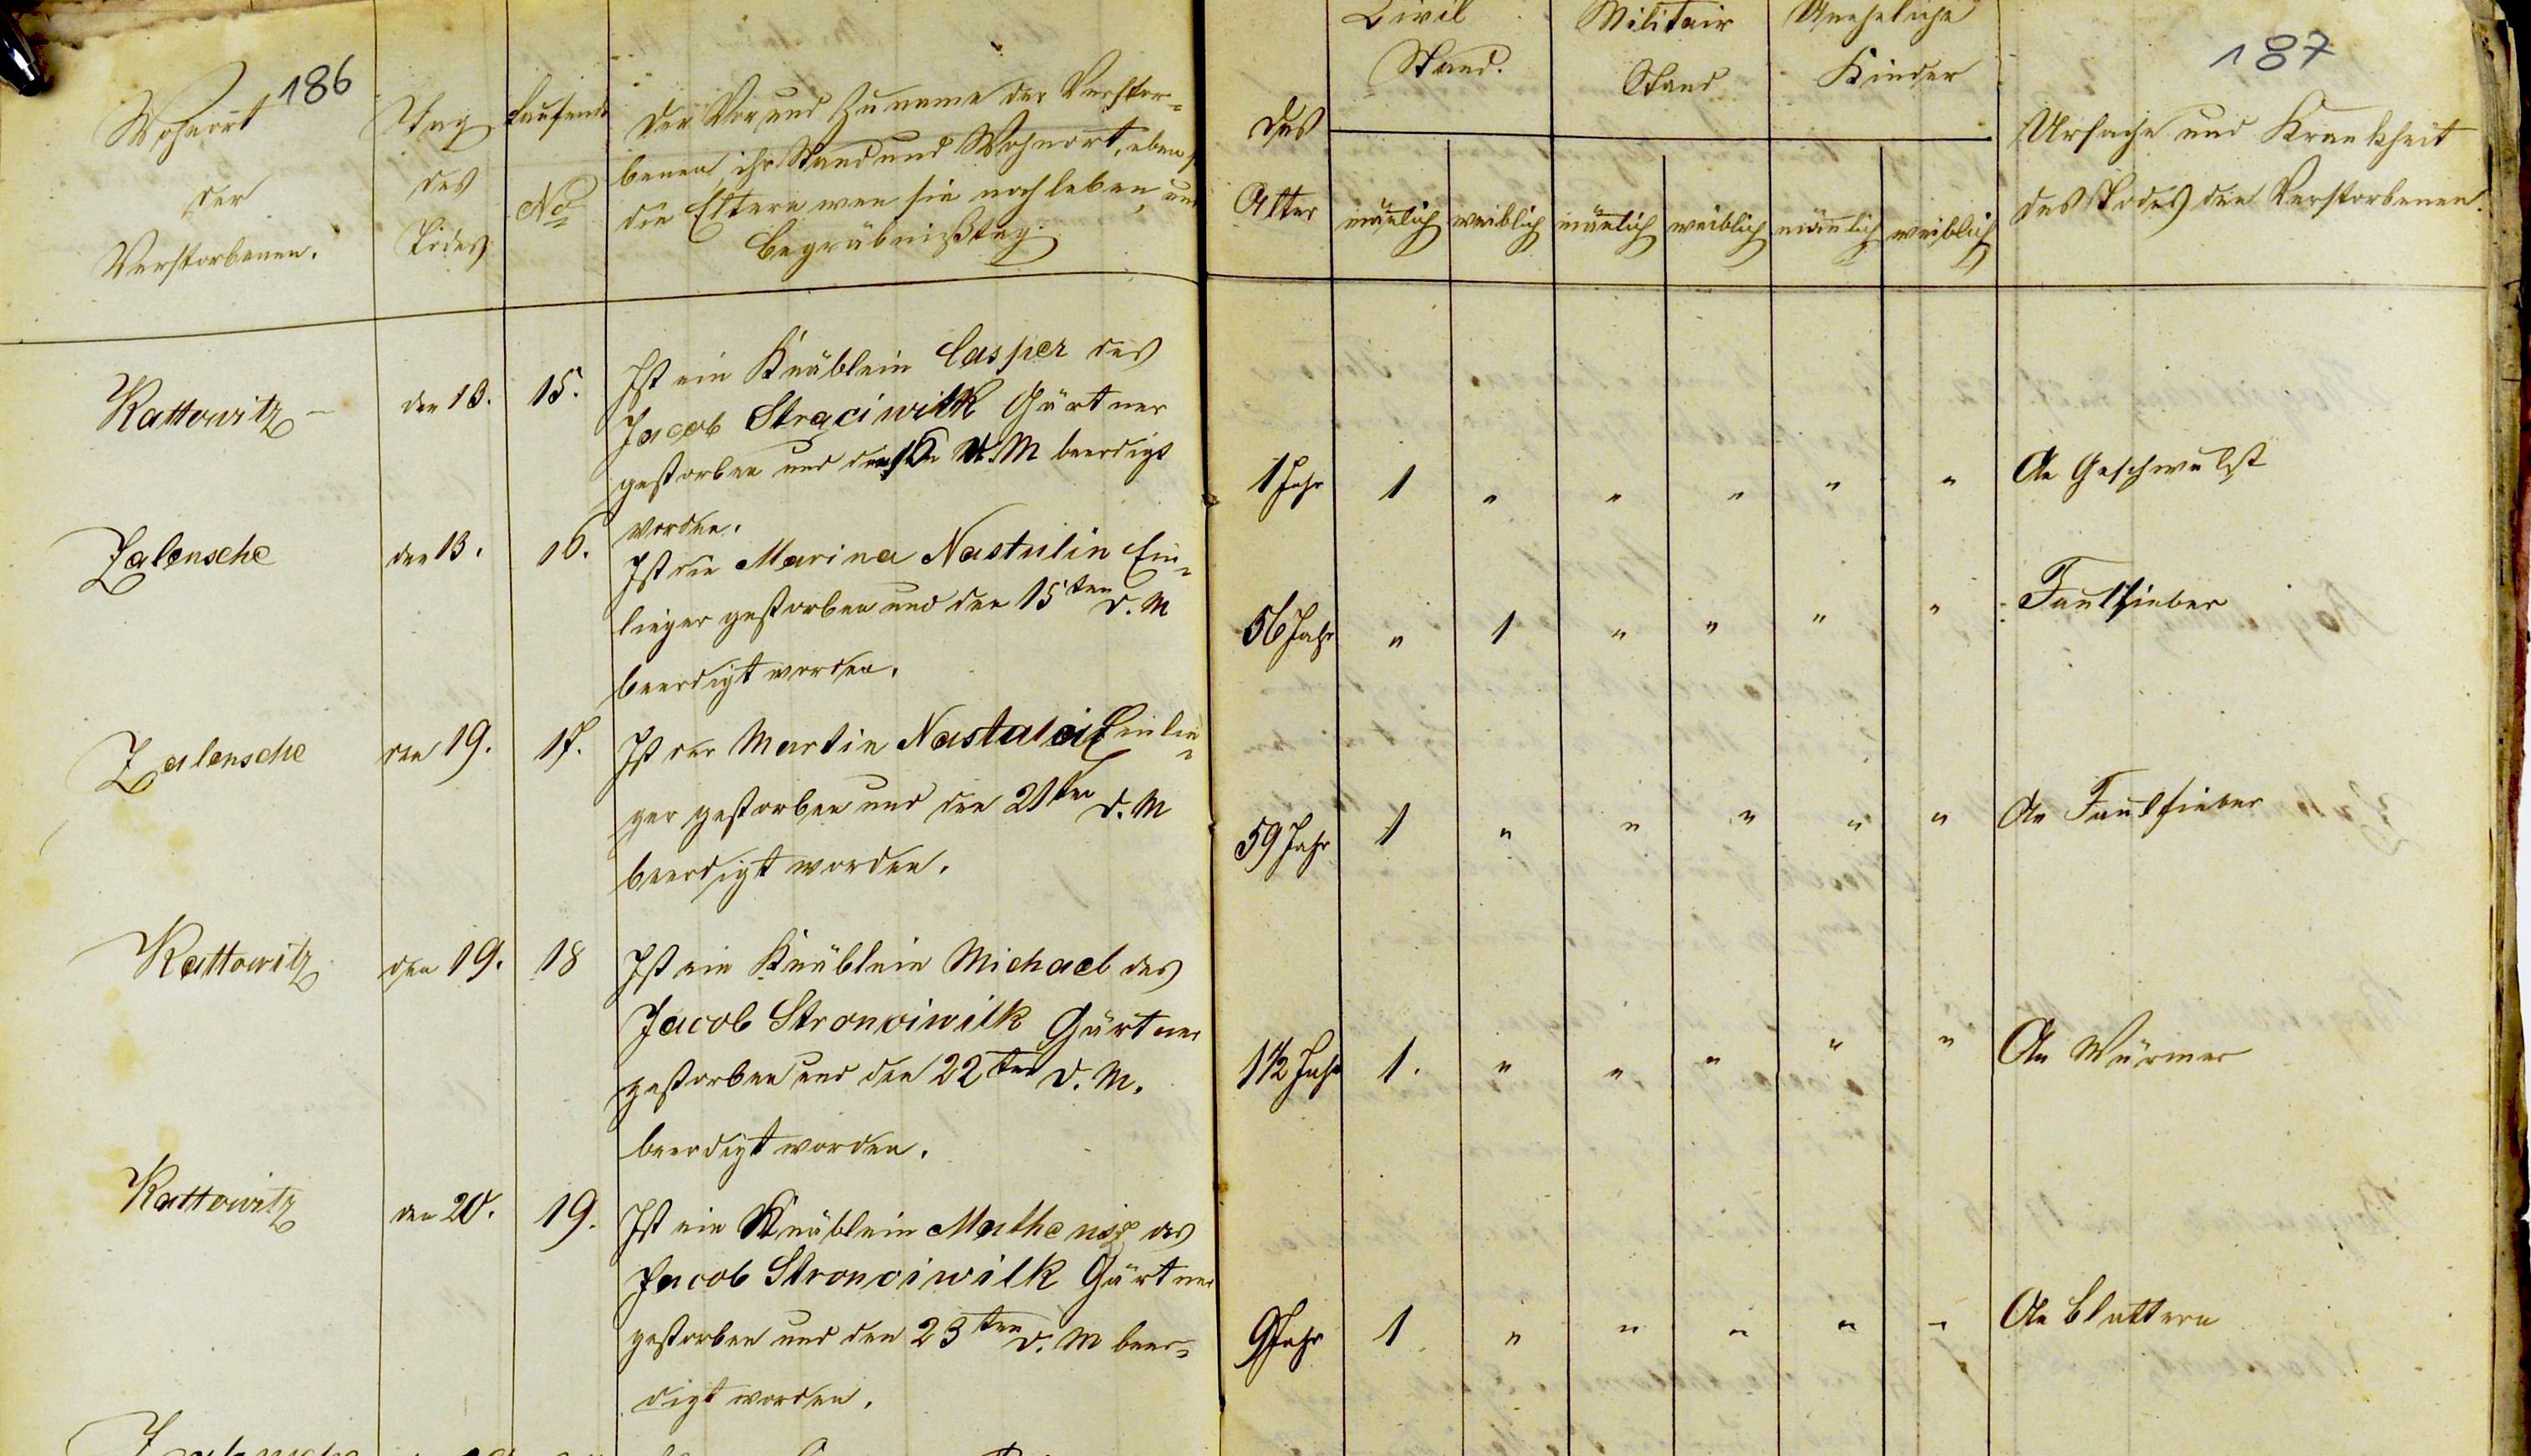 186
Wohnort
der
Verstorbenen.
Tag
des
Todes
laufende
No
Der Vor und Zuname der Verstor=
benen, ihr Stand und Wohnort, eben
die Eltern wen sie noch leben, und
Begräbnißtag.
des
Alter
Civil
Stand.
Militair
Stand
Uneheliche
Kinder
mäñlich weiblich mäñlich weiblich mäñlich weiblich
187
Ursache und Krankheit
des Todes der Verstorbenen.
Kattowitz den 13. 15. Ist ein Knäblein Casper des
Jacob Strąciwilk Gärtner
gestorben und den d. M beerdigt
worden.
1 Jahr 1 " " " " " An Geschwulst
Zalensche den 13. 16. Ist die Marina Nastulin Ein=
lieger gestorben und den 15ten d. M
beerdigt worden.
56 Jahr " 1 " " " " Faulfieber
Zalensche den 19. 17. Ist der Martin Einlie=
ger gestorben und den 21ten d. M
beerdigt worden.
59 Jahr 1 " " " " " An Faulfieber
Kattowitz den 19. 18 Ist ein Knäblein Michael des
Jacob Stronciwilk Gärtner
gestorben und den 22ten d. M.
beerdigt worden.
1 1/2 Jahr 1. " " " " " An Würmer
Kattowitz den 20. 19. Ist ein Knäblein des
Jacob Stronciwilk Gärtner
gestorben und den 23ten d. M beer=
digt worden.
9 Jahr 1 " " " " " An Blattern
Zalensche